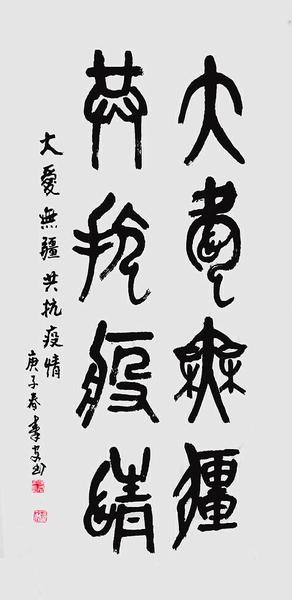 大愛無疆
共抗疫情
大愛無疆共抗疫情
庚子春